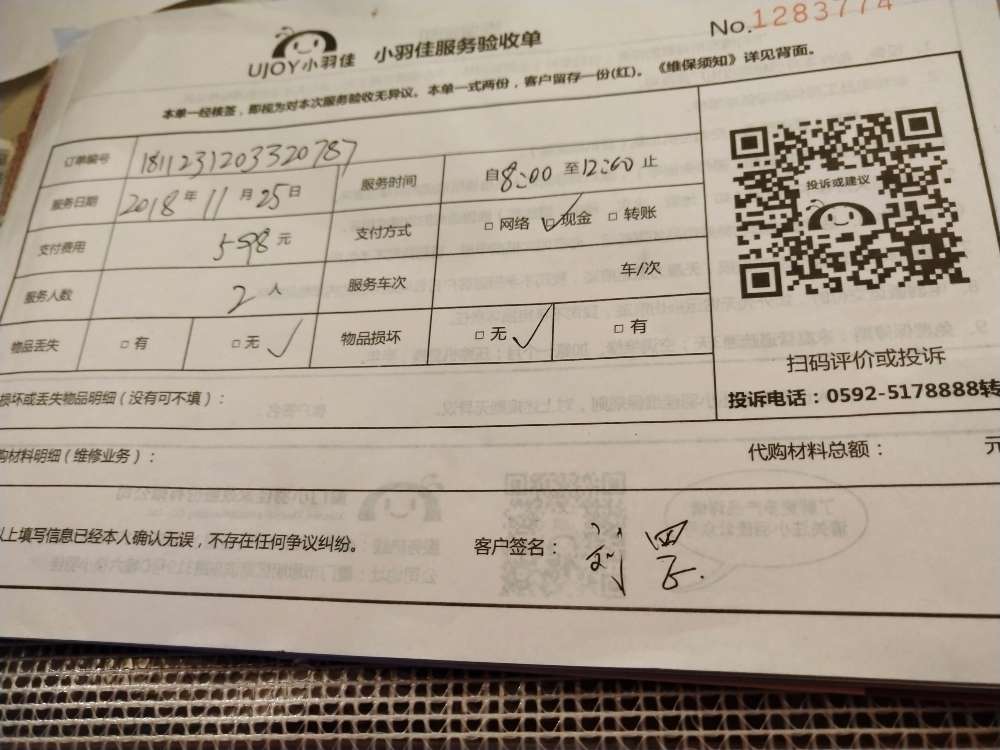 No.1283774
UJOY小羽佳 小羽佳服务验收单
本单一经核签，即视为对本次服务验收无异议。本单一式两份，客户留存一份(红)。《维保须知》详见背面。
订单编号 1811231203320787
服务日期 2018年11月25日 服务时间 自8:00至12:00止
支付费用 598元 支付方式 □网络 ☑现金 □转账
服务人数 2人 服务车次 车/次
物品丢失 □有 □无✓ 物品损坏 □无✓ □有
投诉或建议
扫码评价或投诉
投诉电话：0592-5178888转
损坏或丢失物品明细(没有可不填)：
购材料明细(维修业务)： 代购材料总额： 元
以上填写信息已经本人确认无误，不存在任何争议纠纷。 客户签名：